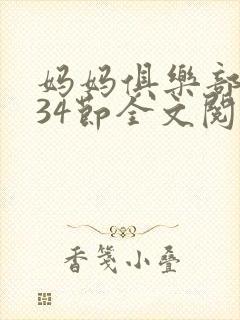 妈妈俱乐部
34节全文阅
香笺小叠